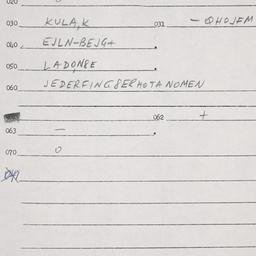 020
030 KULA,K 031 - QHOJEM
040 EJLN-BEJGA
050 LADONBE
060 JEDERFINGBERHOTANOMEN
062 +
063 —
070 0